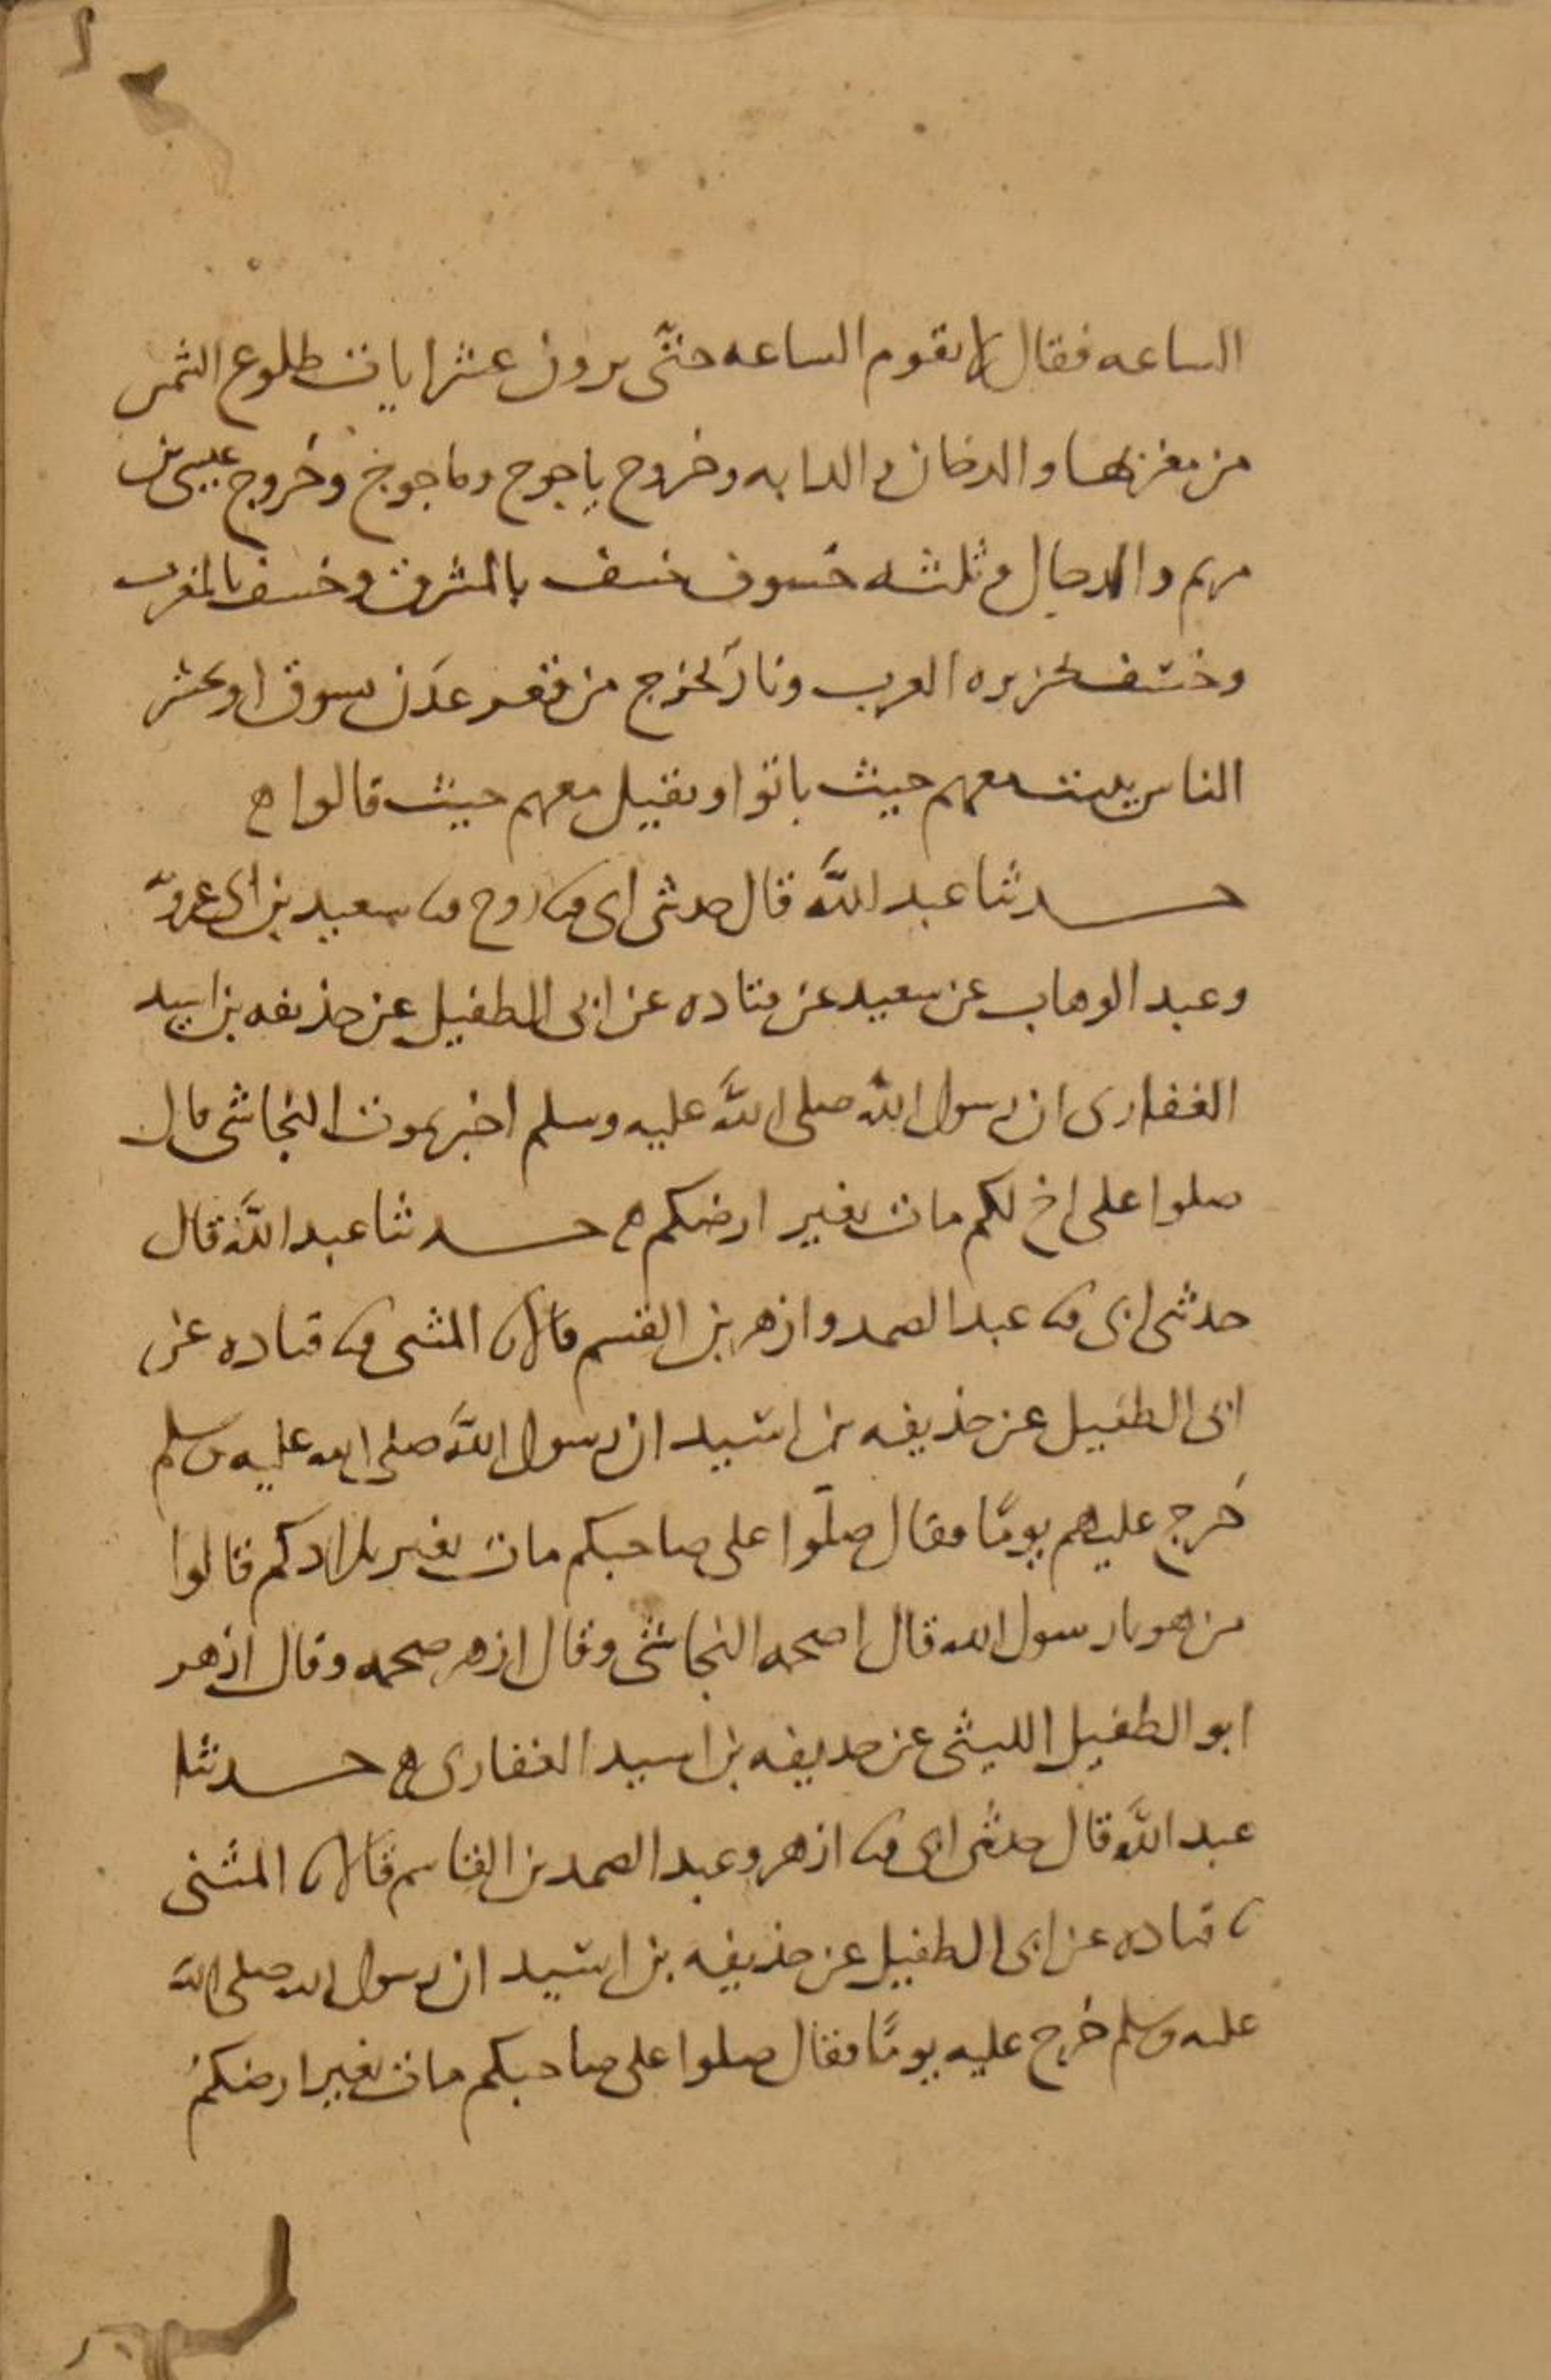 الساعه فقال لا تقوم الساعه حتى يرون عشر ايات طلوع الشمس
من مغربها والدخان والدابه وخروج ياجوج وماجوج وخروج عيسى بن
مريم والدجال وثلثه خسوف خسف بالمشرق وخسف بالمغرب
وخسف بجزيره العرب ونار تخرج من قعر عدن تسوق او تحشر
الناس تبيت معهم حيث باتوا وتقيل معهم حيث قالوا ه
حدثنا عبد الله قال حدثنى ابى ثنا روح ثنا سعيد بن ابى عروبه
وعبد الوهاب عن سعيد عن قتاده عن ابى الطفيل عن حذيفه بن اسيد
الغفارى ان رسول الله صلى الله عليه وسلم اخبر بموت النجاشى قال
صلوا على اخ لكم مات بغير ارضكم ه حدثنا عبد الله قال
حدثنى ابى ثنا عبد الصمد وازهر بن القسم قالا ثنا المثنى ثنا قتاده عن
ابى الطفيل عن حذيفه بن اسيد ان رسول الله صلى الله عليه وسلم
خرج عليهم يومًا فقال صلّوا على صاحبكم مات بغير بلادكم قالوا
من هو يا رسول الله قال اصحمه النجاشى وقال ازهر صحمه وقال ازهر
ابو الطفيل الليثى عن حذيفه بن اسيد الغفارى ه حدثنا
عبد الله قال حدثنى ابى ثنا ازهر وعبد الصمد بن القاسم قالا ثنا المثنى
ثنا قتاده عن ابى الطفيل عن حذيفه بن اسيد ان رسول الله صلى الله
عليه وسلم خرج عليه يومًا فقال صلوا على صاحبكم مات بغير ارضكم